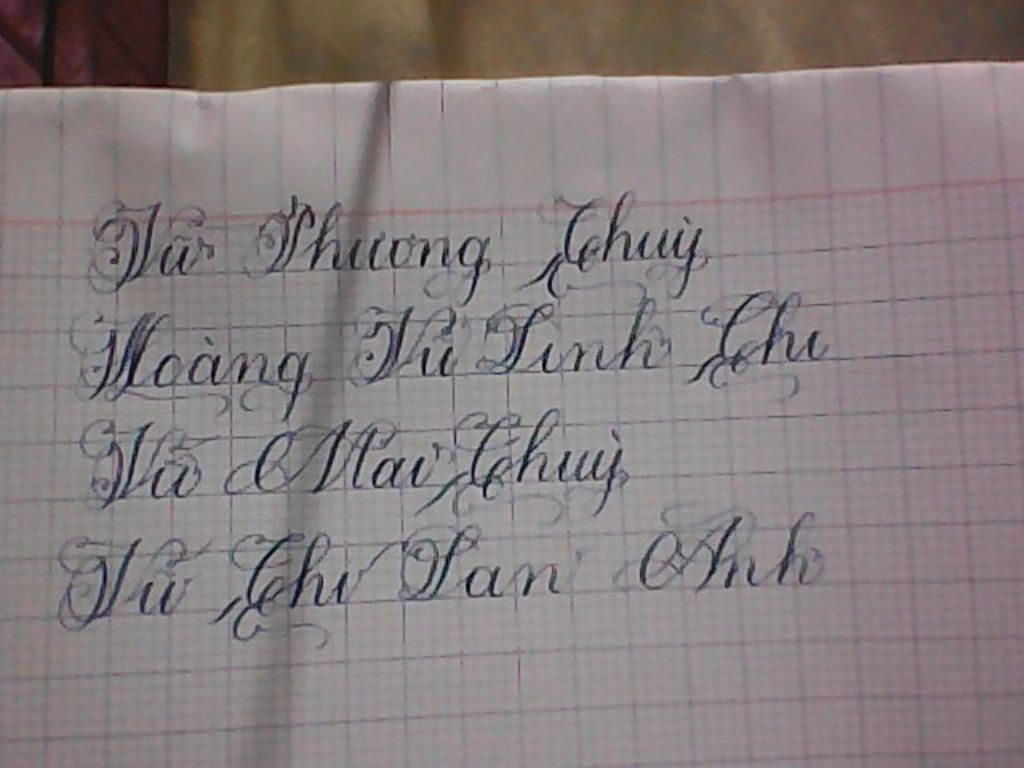 Vũ Phương Thuỳ
Hoàng Vũ Linh Chi
Vũ Mai Thuỳ
Vũ Thị Lan Anh